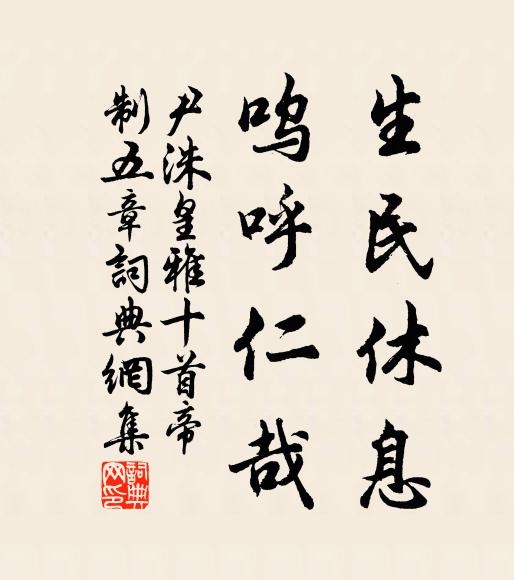 生民休息
呜呼仁哉
尹洙皇雅十首帝
制五章詞典網集
詞典网印